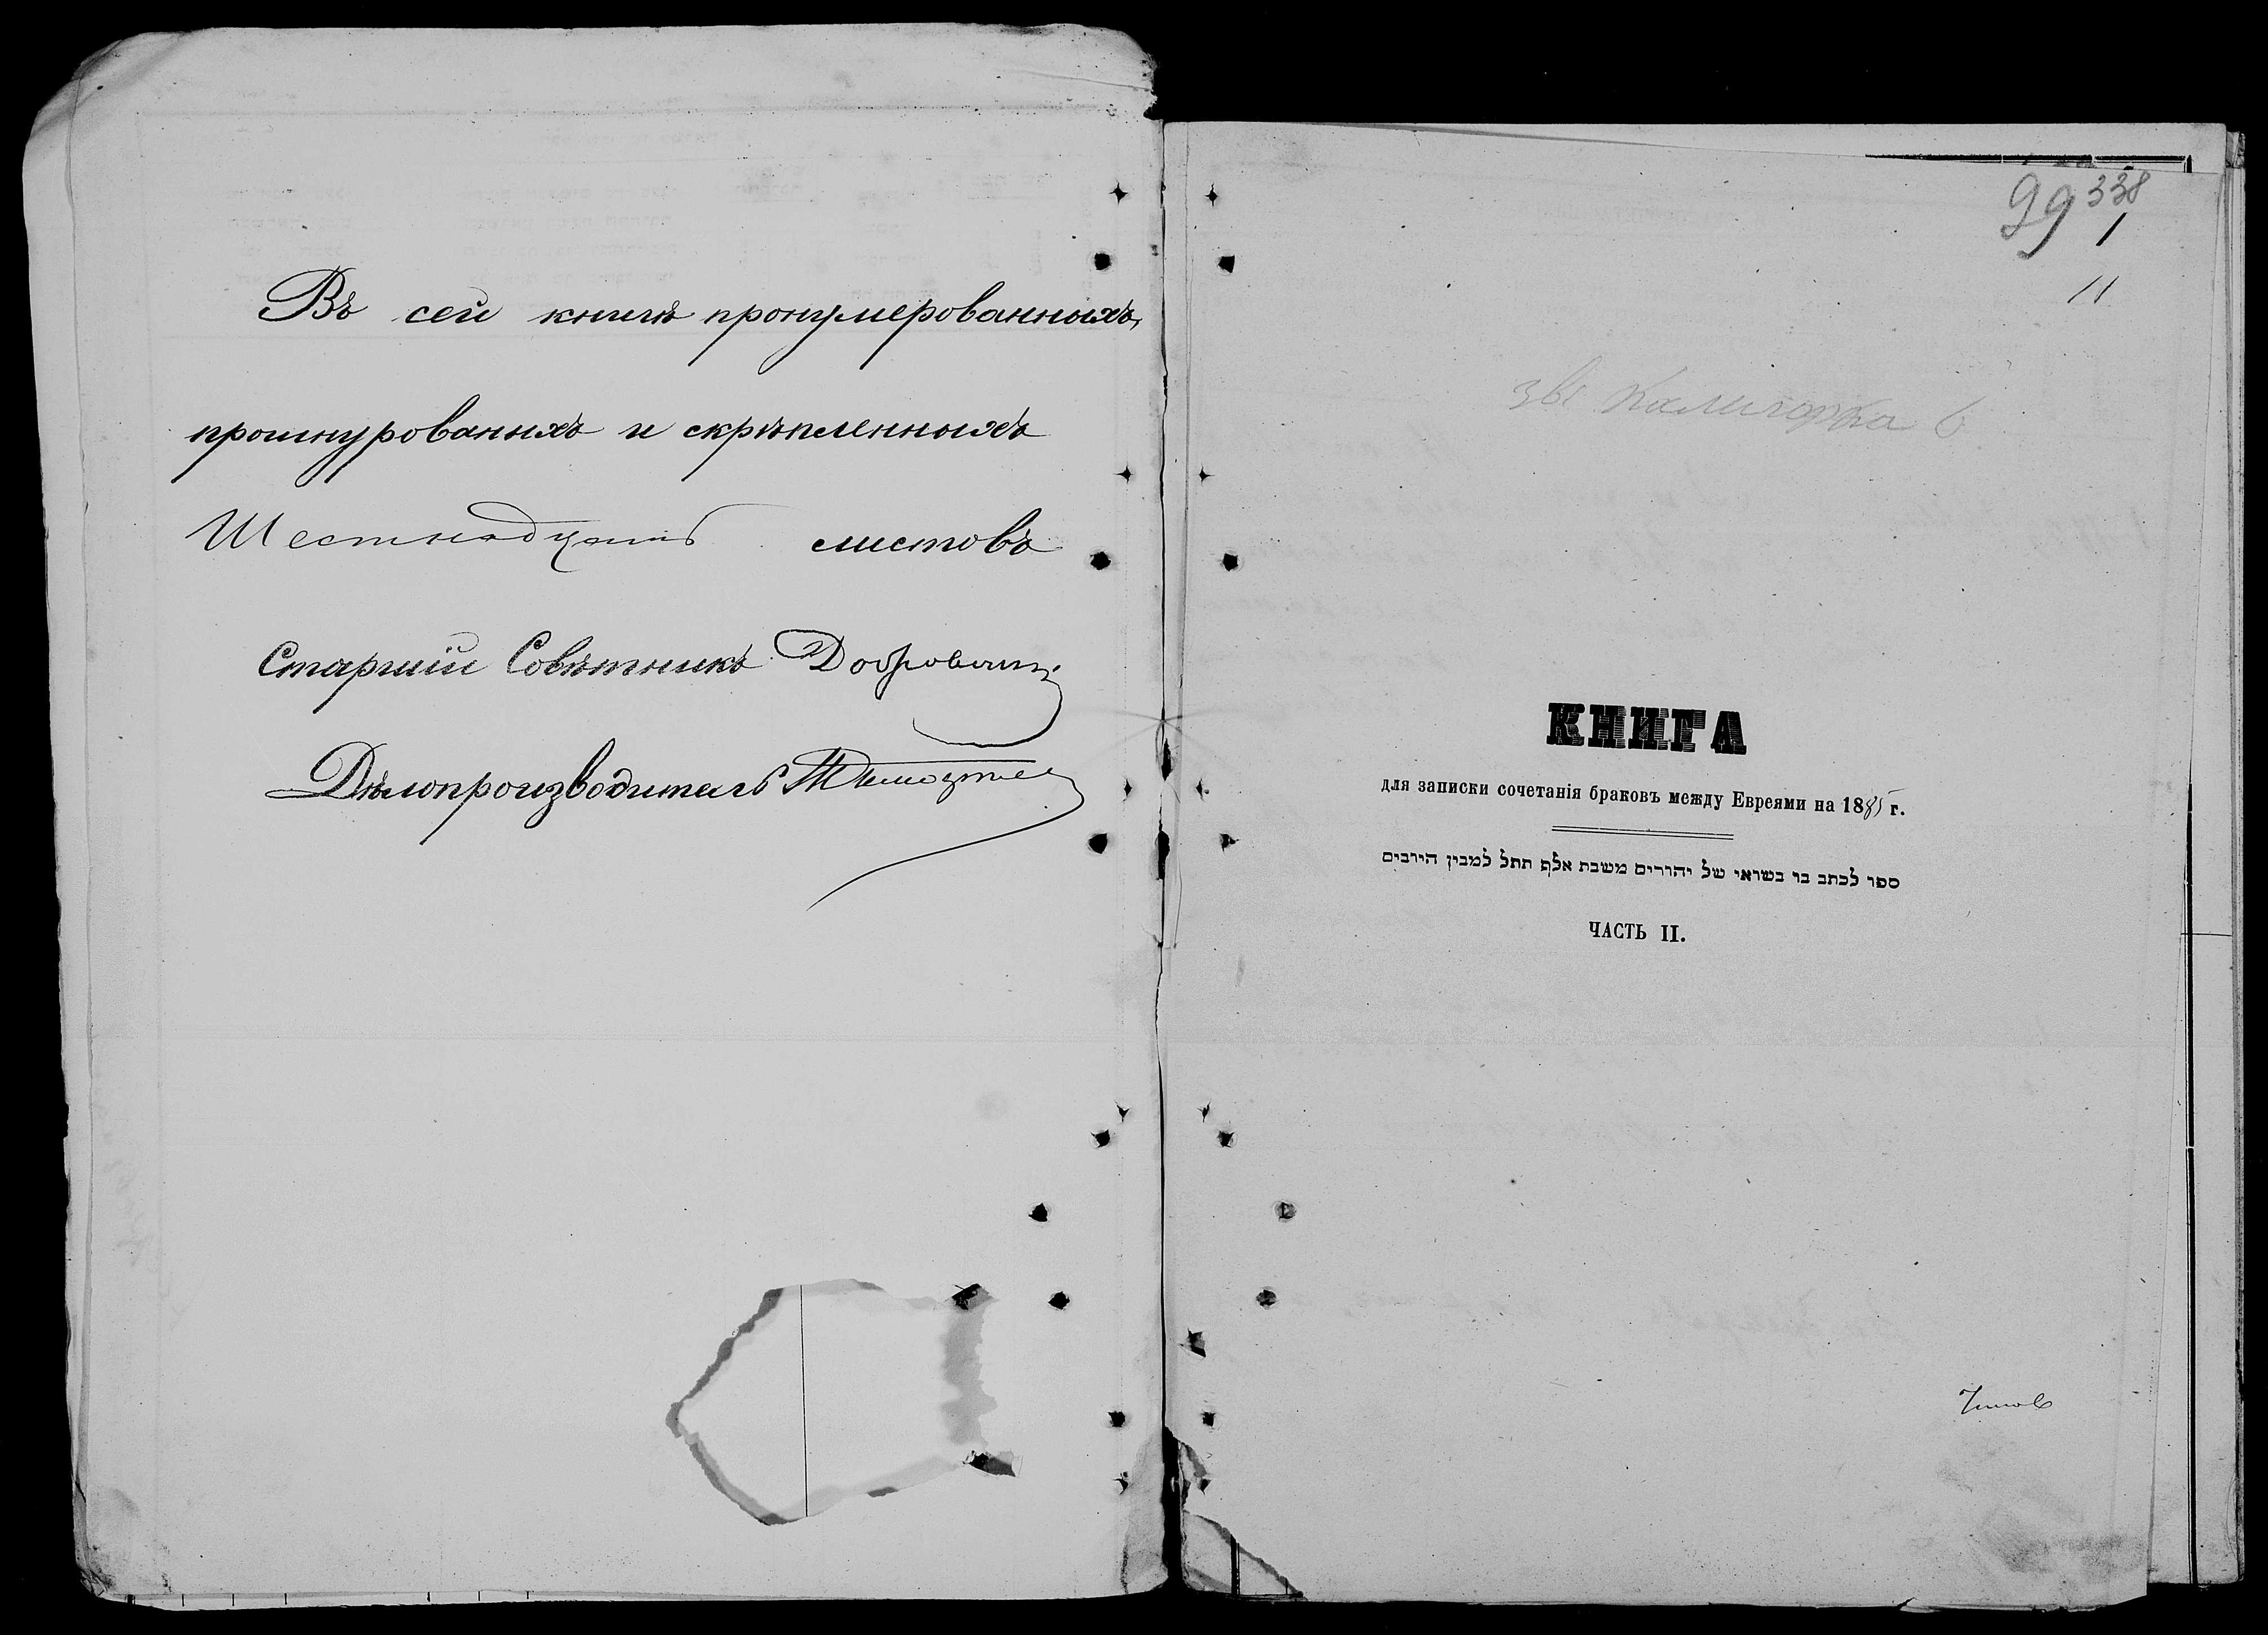 Въ сей книгѣ пронумерованныхъ,
прошнурованныхъ и скрѣпленныхъ
Шестнадцать листовъ
Старшій Совѣтникъ
Дѣлопроизводитель
99 338
1
11
Калигорка
КНИГА
для записки сочетанія браковъ между Евреями на 1885 г.
ספר לכתב בו נשואי של יהודים משנת אלף תתל למנין הירבים
ЧАСТЬ II.